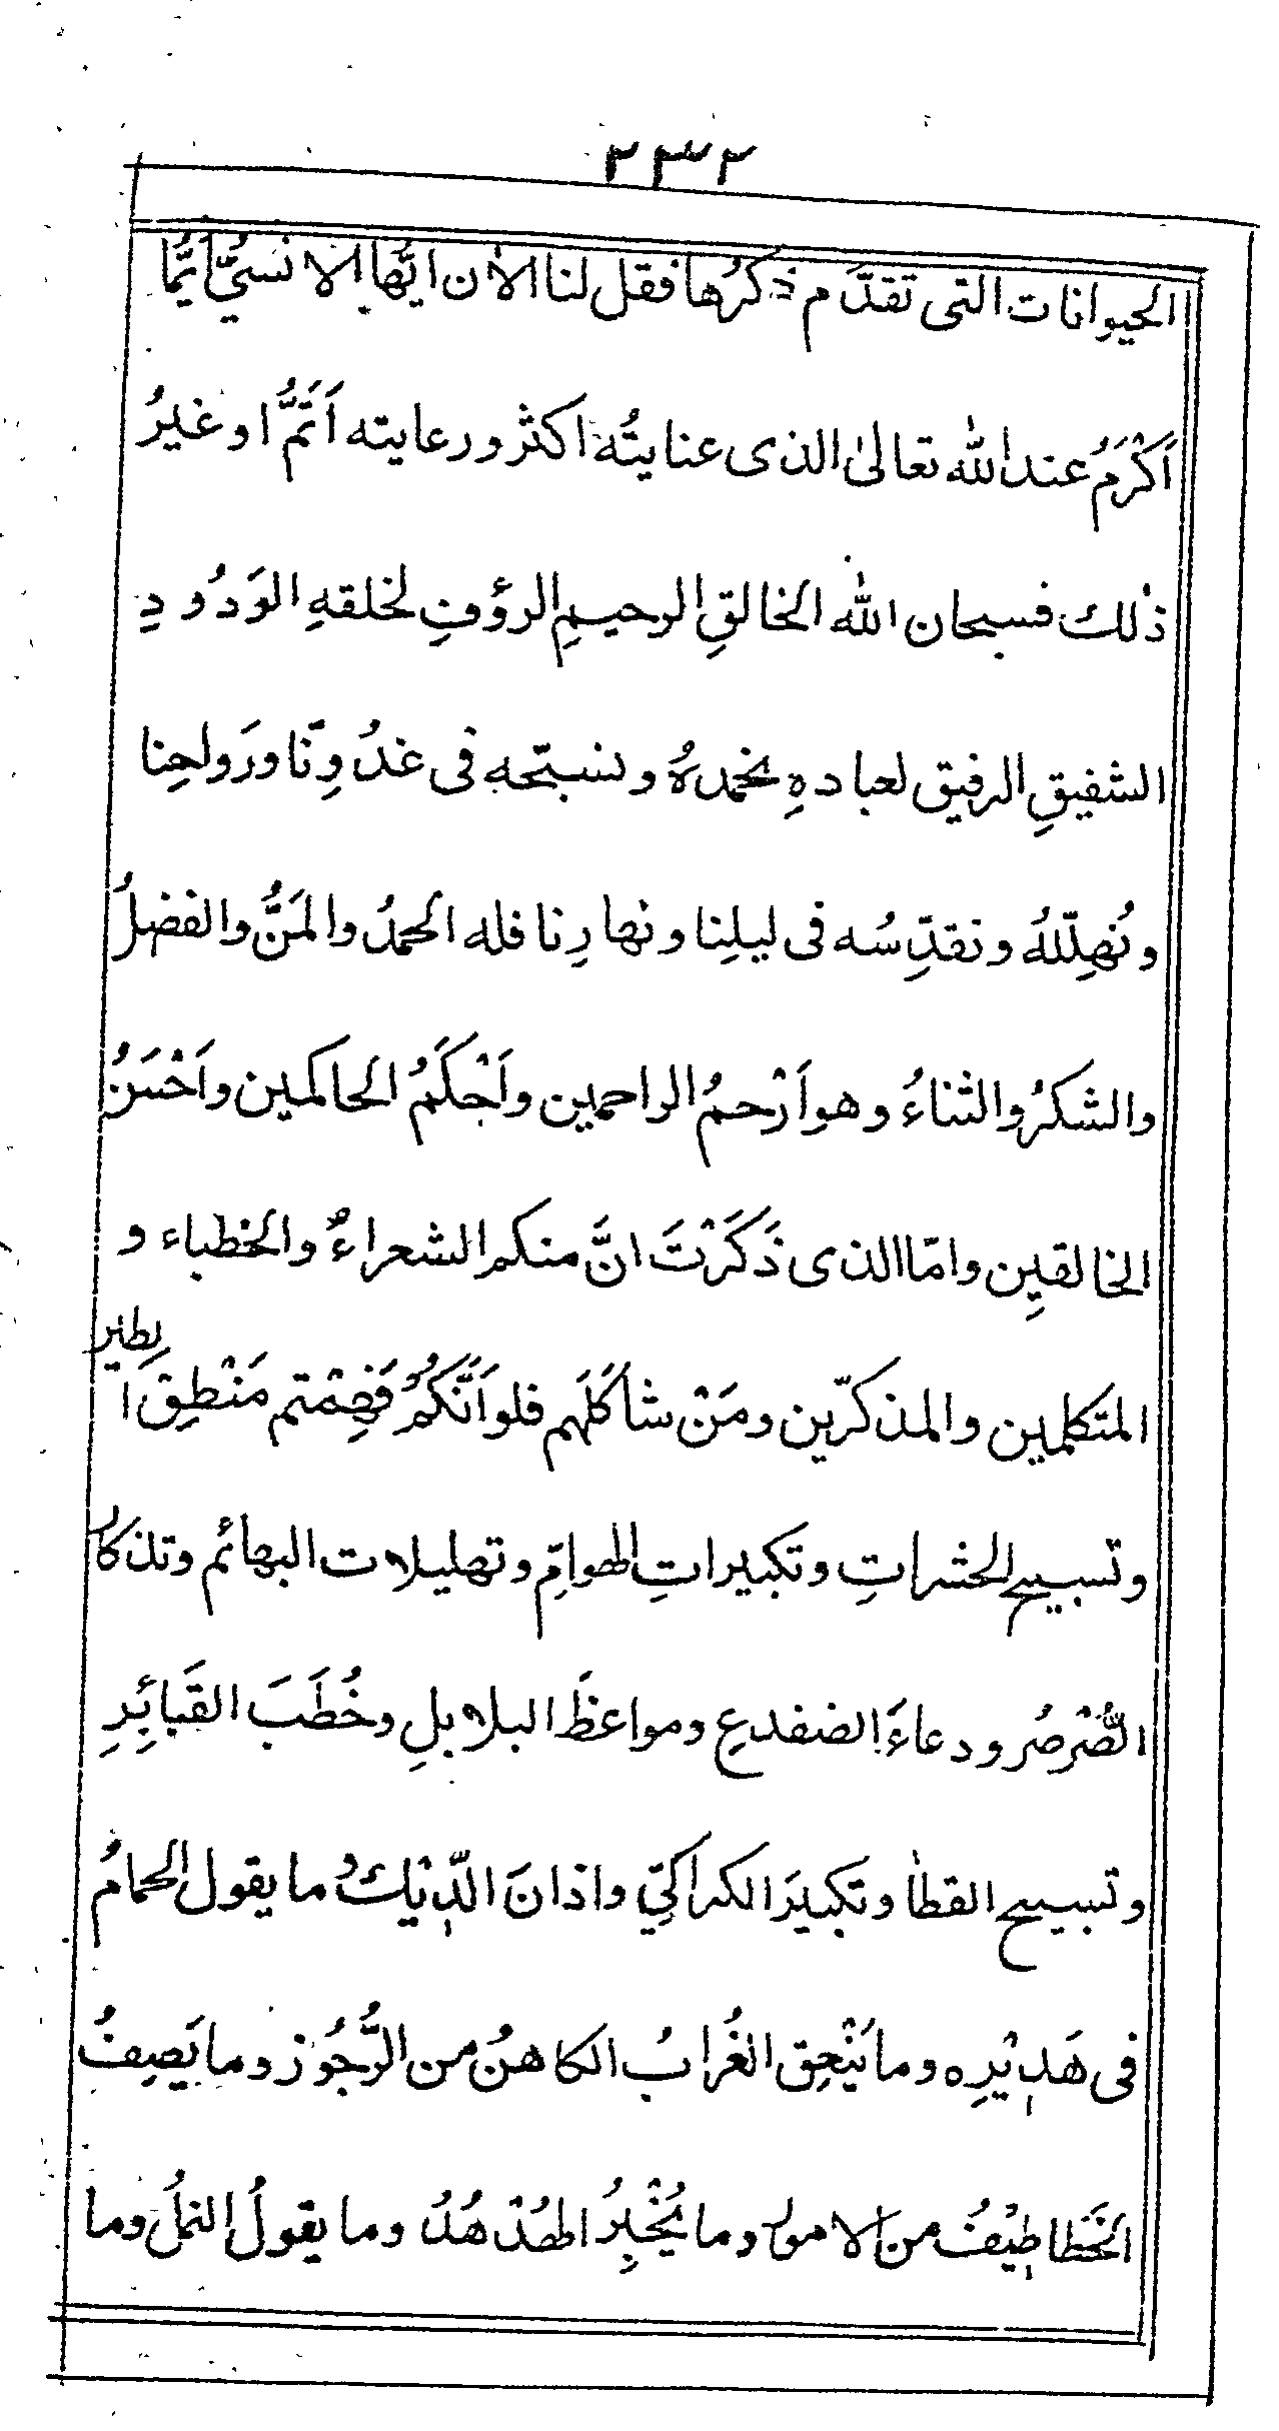 ٢٣٢
الحيوانات التى تقدّم ذكرُها فقل لنا الاٰن ايّها الانسيُّ اَيُّما
اَكْرَمُ عند الله تعالىٰ الذى عنايتُه اكثر ورعايته اَتَمُّ او غيرُ
ذٰلك فسبحان الله الخالقِ الرحيمِ الرؤفِ لخلقهِ الوَدُودِ
الشفيقِ الرفيق لعبادهِ نحمدهُ ونسبّحه فى غدُوِّنا ورَواحِنا
ونُهلِّلهُ ونقدِّسُه فى ليلِنا ونهارِنا فله الحمدُ والمَنُّ والفضلُ
والشكرُ والثناءُ وهو اَرْحمُ الراحمين واَحْكَمُ الحاكمين واَحْسَنُ
الخالقِين وامّا الذى ذَكَرْتَ انَّ منكم الشعراءُ والخطباء و
المتكلمين والمذكرّين ومَنْ شاكَلَهم فلو اَنَّكُمْ فَهِمْتم مَنْطِقَ الطير
وتسبيح الحشراتِ وتكبيراتِ الهوامِّ وتهليلات البهائم وتذكار
الصُّرْصُر ودعاءَ الضفدعِ ومواعظَ البلابلِ وخُطَبَ القَبائِرِ
وتسبيح القطا وتكبيرَ الكراكيّ واذانَ الدّيْك وما يقول الحمامُ
فى هَدِيْرِه وما يَنْعِق الغُرابُ الكاهنُ من الزُّجُوز وما يَصِفُ
الخَطاطِيْفُ من الامور وما يُخْبِرُ الهُدْهُدُ وما يقولُ النملُ وما